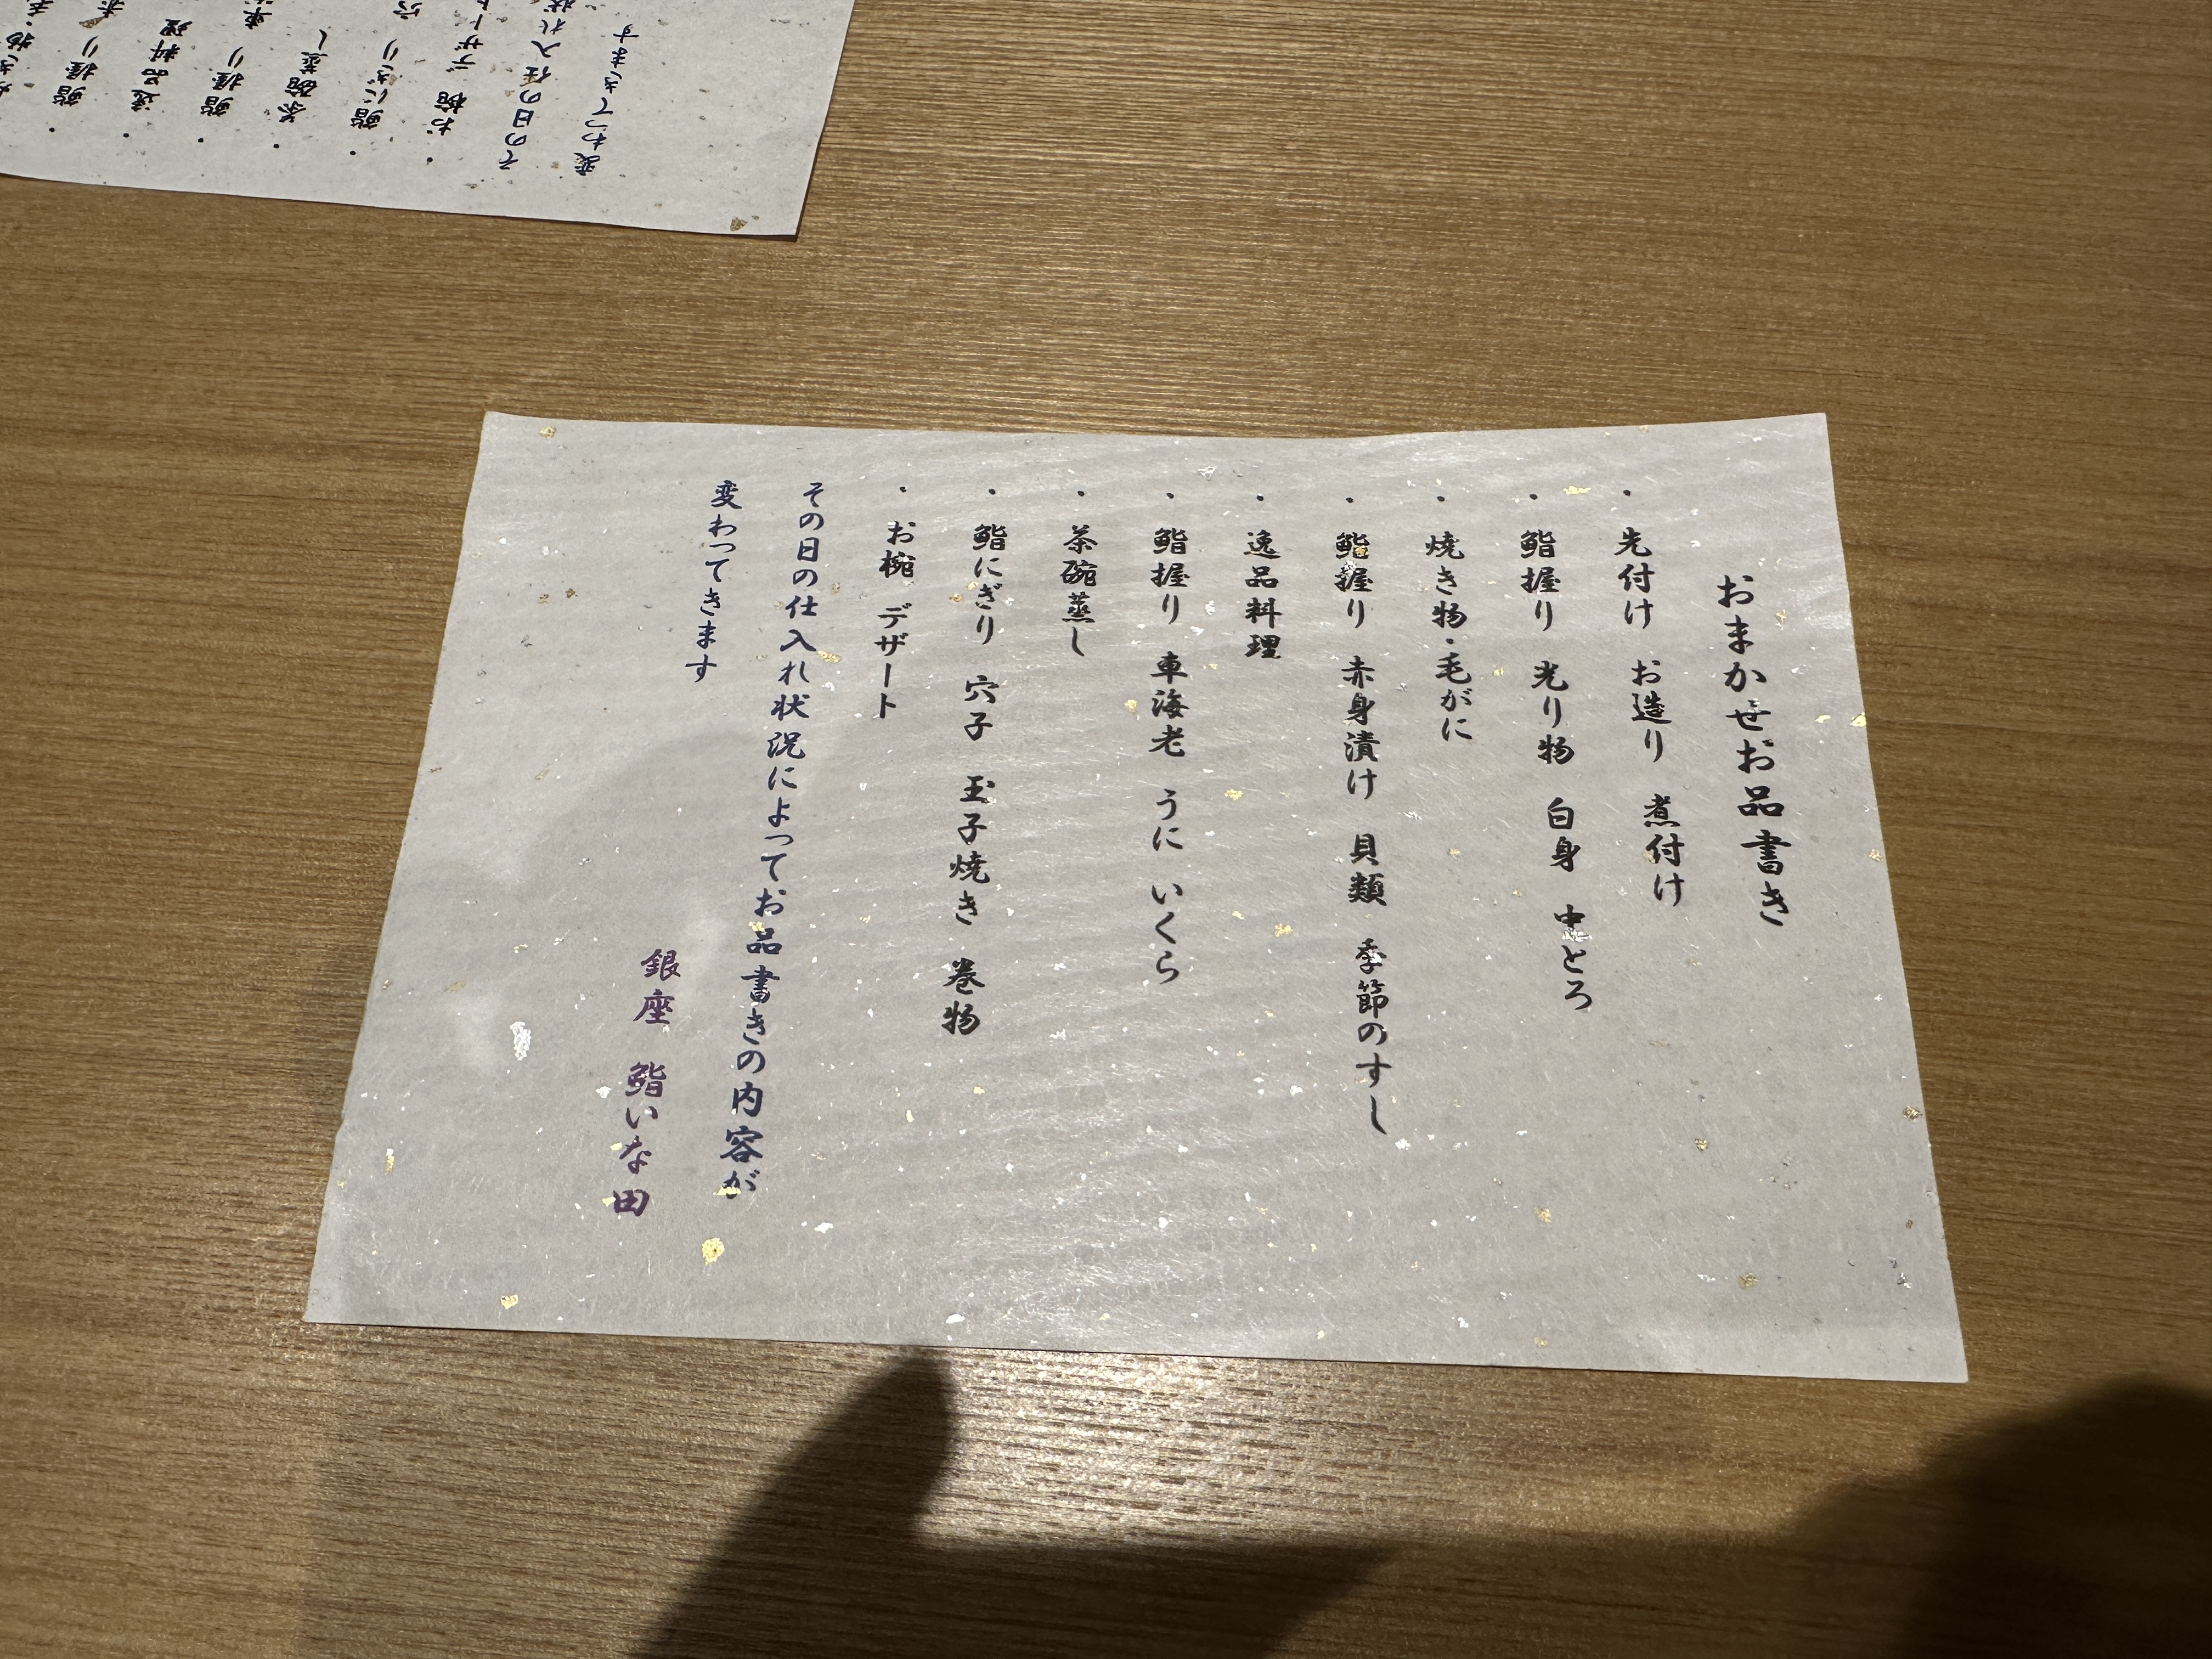 おまかせお品書き
・先付け　お造り　煮付け
・鮨握り　光り物　白身　中とろ
・焼き物・毛がに
・鮨握り　赤身漬け　貝類　季節のすし
・逸品料理
・鮨握り　車海老　うに　いくら
・茶碗蒸し
・鮨にぎり　穴子　玉子焼き　巻物
・お椀　デザート
その日の仕入れ状況によってお品書きの内容が
変わってきます
銀座　鮨いな田
・鮨握り
・逸品料理
・鮨握り
・茶碗蒸し
・鮨にぎり　穴
・お椀　デザート
その日の仕入れ状
変わってきます